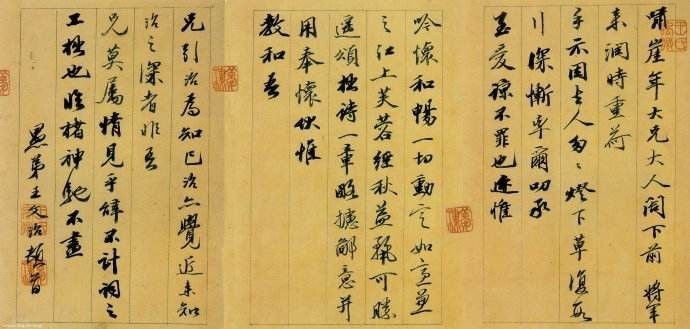 嘯崖年大兄大人閣下前 將軍
來潤時重荷
手示因去人匆匆燈下草復數
行深慚率爾叨承
至愛諒不罪也遠惟
吟懷和暢一切動定如
之江上芙蓉經秋益艷可勝
遥頌拙詩一章略攄鄙意并
用奉懷伏惟
教和吾
兄引治爲知己治亦覺近来知
治之深者非吾
兄莫屬情見乎辭不計詞之
工拙也臨楮神馳不盡
愚弟王文治頓首